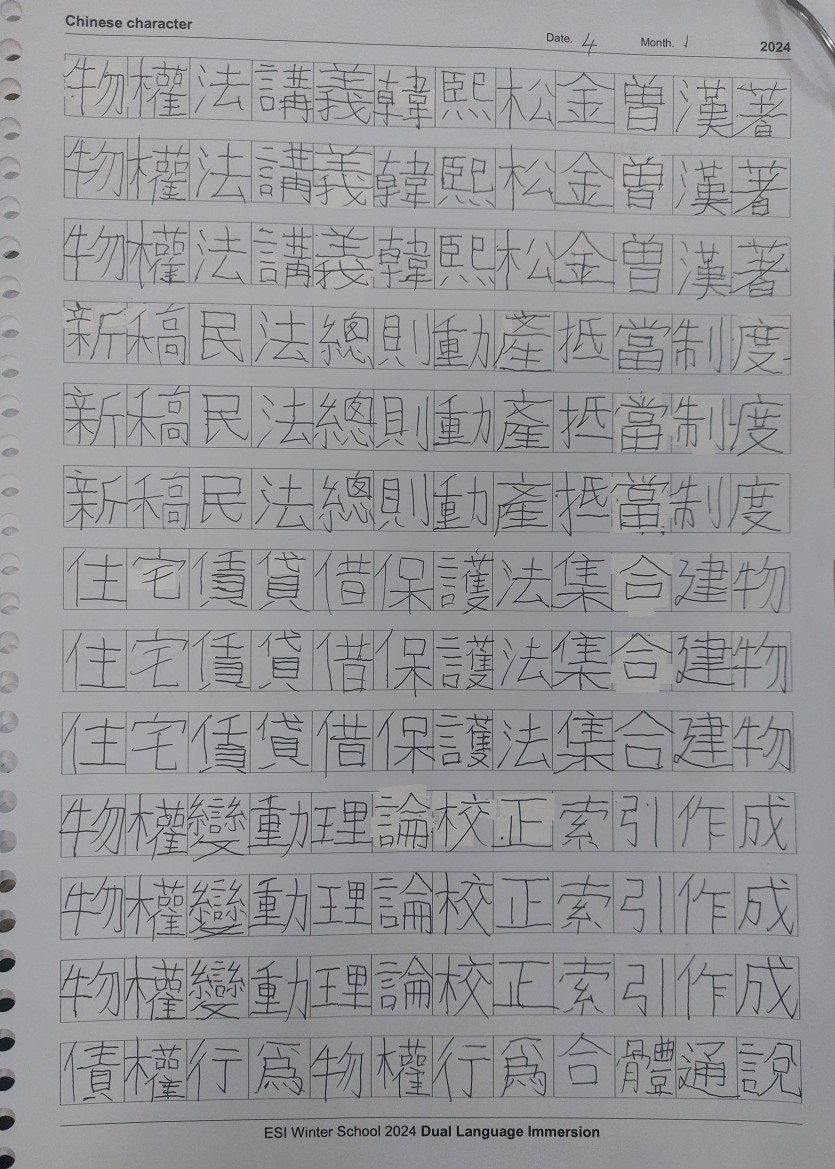 Chinese character
Date. 4 Month. 1 2024
物權法講義韓熙松金曾漢著
物權法講義韓熙松金曾漢著
物權法講義韓熙松金曾漢著
新稿民法總則動產抵當制度
新稿民法總則動產抵當制度
新稿民法總則動產抵當制度
住宅賃貸借保護法集合建物
住宅賃貸借保護法集合建物
住宅賃貸借保護法集合建物
物權變動理論校正索引作成
物權變動理論校正索引作成
物權變動理論校正索引作成
債權行爲物權行爲合體通說
ESI Winter School 2024 Dual Language Immersion